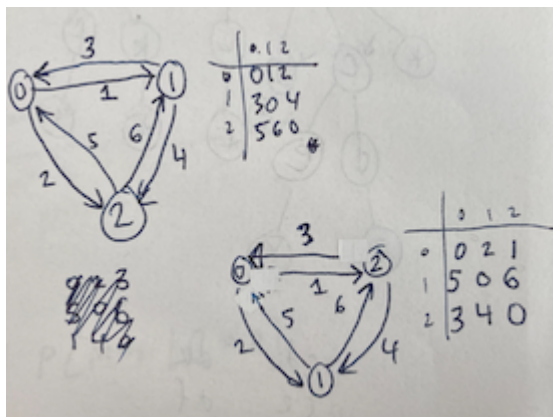 3
0 1 1
5 6
2 4
2
0 1 2
0 0 1 2
1 3 0 4
2 5 6 0
3
0 2
1
5 6
2 4
1
0 1 2
0 0 2 1
1 5 0 6
2 3 4 0